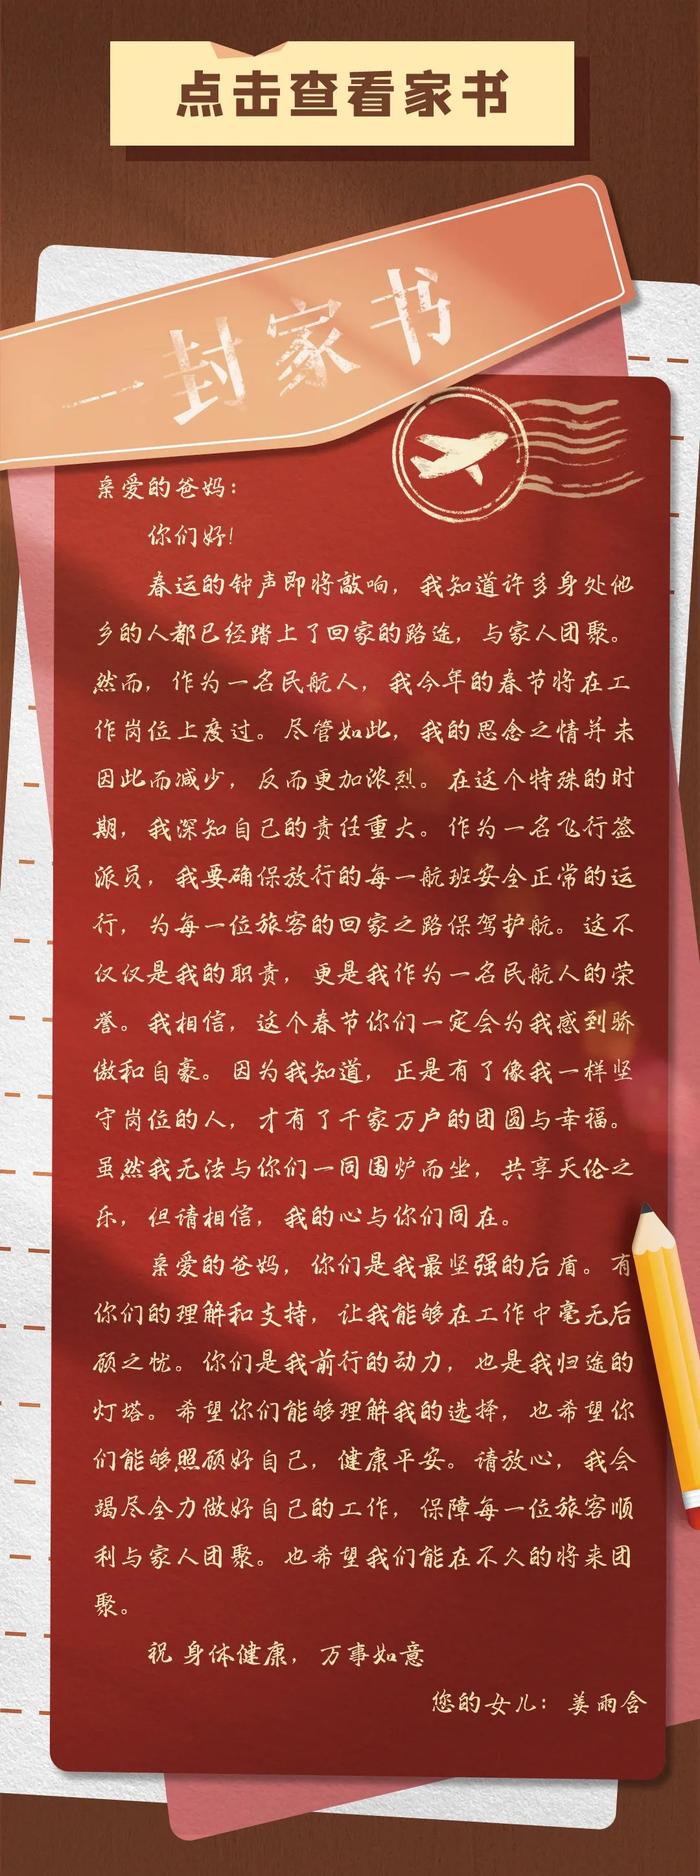 点击查看家书
一封家书
亲爱的爸妈：
你们好！
春运的钟声即将敲响，我知道许多身处他
乡的人都已经踏上了回家的路途，与家人团聚。
然而，作为一名民航人，我今年的春节将在工
作岗位上度过。尽管如此，我的思念之情并未
因此而减少，反而更加浓烈。在这个特殊的时
期，我深知自己的责任重大。作为一名飞行签
派员，我要确保放行的每一航班安全正常的运
行，为每一位旅客的回家之路保驾护航。这不
仅仅是我的职责，更是我作为一名民航人的荣
誉。我相信，这个春节你们一定会为我感到骄
傲和自豪。因为我知道，正是有了像我一样坚
守岗位的人，才有了千家万户的团圆与幸福。
虽然我无法与你们一同围炉而坐，共享天伦之
乐，但请相信，我的心与你们同在。
亲爱的爸妈，你们是我最坚强的后盾。有
你们的理解和支持，让我能够在工作中毫无后
顾之忧。你们是我前行的动力，也是我归途的
灯塔。希望你们能够理解我的选择，也希望你
们能够照顾好自己，健康平安。请放心，我会
竭尽全力做好自己的工作，保障每一位旅客顺
利与家人团聚。也希望我们能在不久的将来团
聚。
祝 身体健康，万事如意
您的女儿：姜雨含